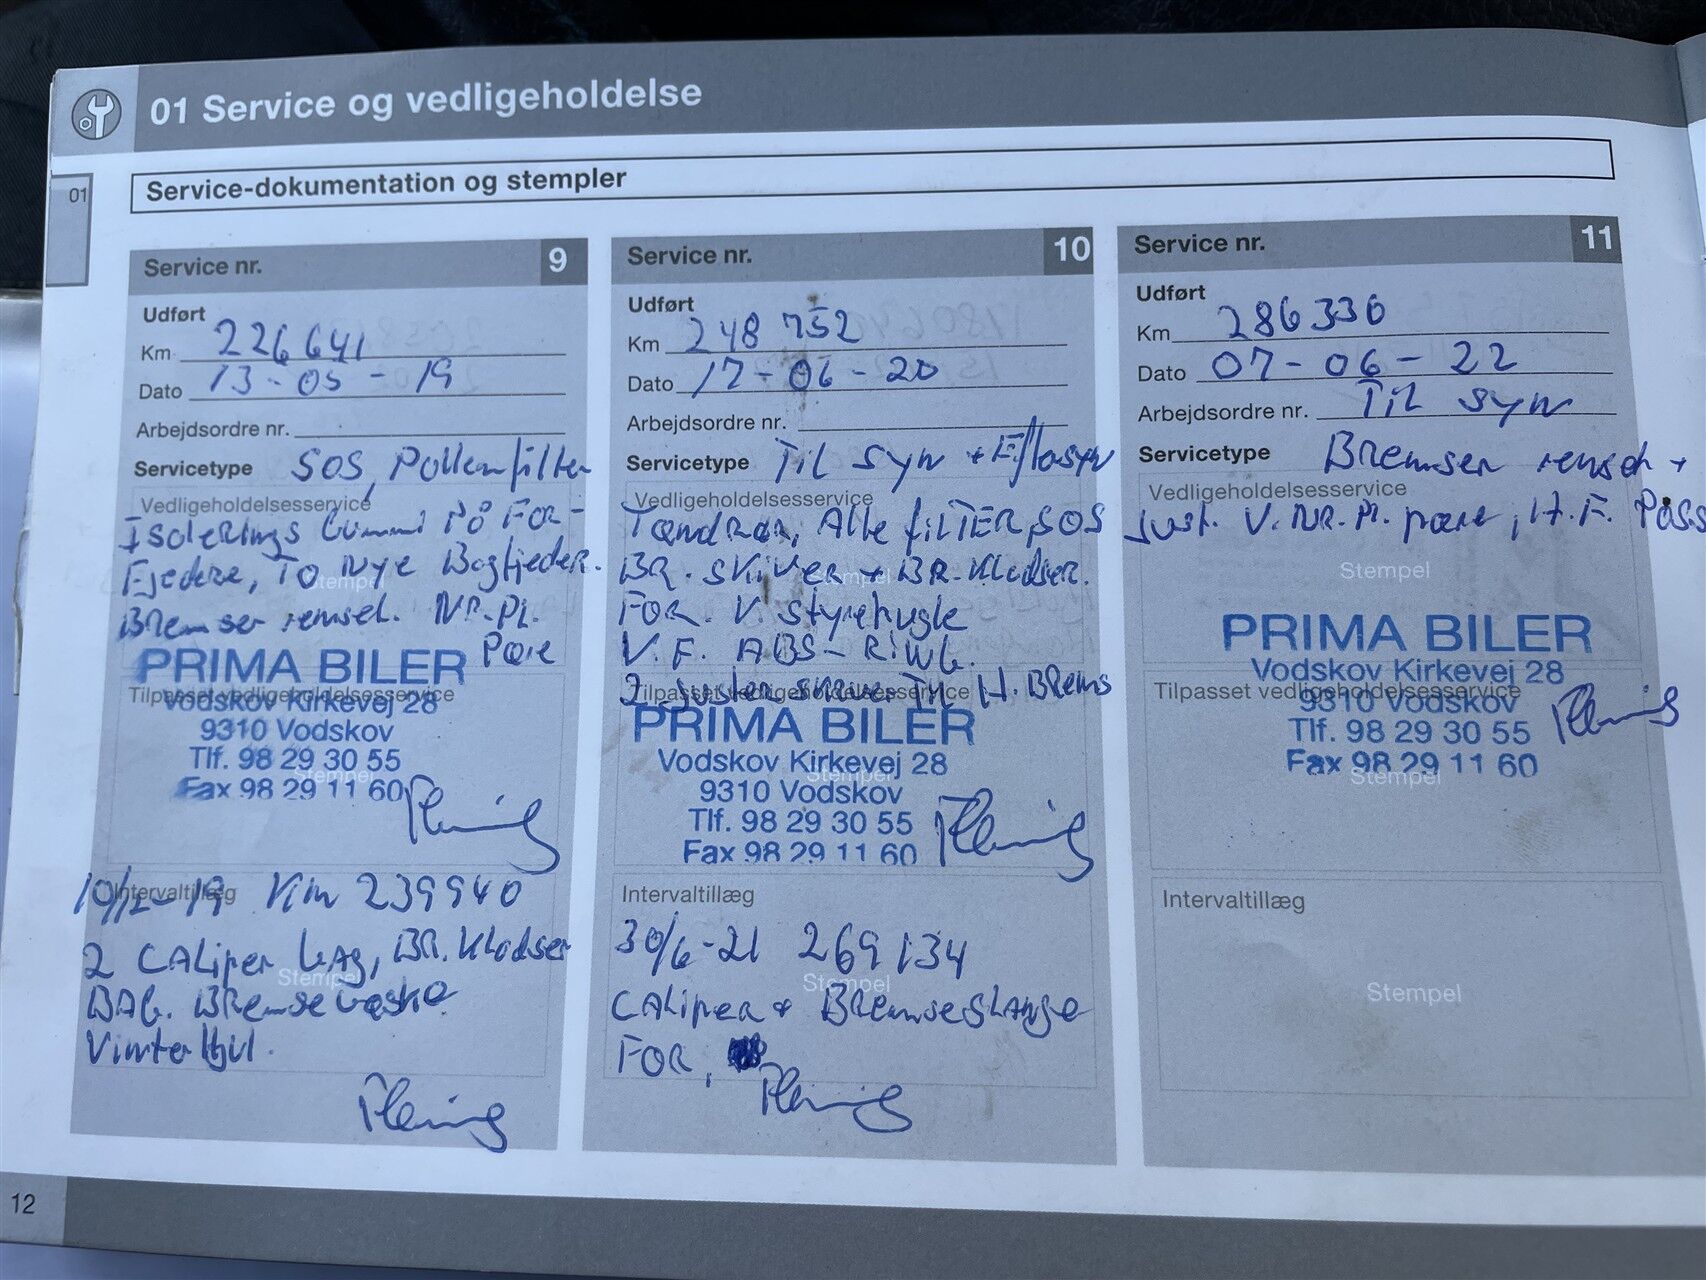 01 Service og vedligeholdelse
01
Service-dokumentation og stempler
Service nr. 9
Udført
Km 226641
Dato 13-05-19
Arbejdsordre nr.
Servicetype SOS, Pollenfilter
Vedligeholdelsesservice
Isolerings Gummi På FOR-
Fjedere, To Nye Bagfjeder.
Stempel
Bremser renset. NR.Pl.
Pære
PRIMA BILER
Tilpasset vedligeholdelsesservice
Vodskov Kirkevej 28
9310 Vodskov
Tlf. 98 29 30 55
Stempel
Fax 98 29 11 60
Flemming
Intervaltillæg
10/12-19 Km 239940
2 CALiper bAg, BR. Klodser
Stempel
BAG. Bremsevæske
Vinterhjul.
Flemming
Service nr. 10
Udført
Km 248752
Dato 17-06-20
Arbejdsordre nr.
Servicetype Til syn + E/lasyn
Vedligeholdelsesservice
Tandrem, Alle filTER, SOS
BR. skiver + BR-Klodser.
Stempel
FOR. V. styrekugle
V. F. ABS-RiNG.
Tilpasset vedligeholdelsesservice
2 Juster skruer Til H. Brems
PRIMA BILER
Vodskov Kirkevej 28
Stempel
9310 Vodskov
Tlf. 98 29 30 55
Fax 98 29 11 60
Flemming
Intervaltillæg
30/6-21 269134
Stempel
CALiper + Bremseslange
FOR,
Flemming
Service nr. 11
Udført
Km 286330
Dato 07-06-22
Arbejdsordre nr. Til syn
Servicetype Bremser renset +
Vedligeholdelsesservice
Just. V. NR. Pl. pære, H. F. Pos
Stempel
PRIMA BILER
Vodskov Kirkevej 28
Tilpasset vedligeholdelsesservice
9310 Vodskov
Tlf. 98 29 30 55
Fax 98 29 11 60
Stempel
Flemming
Intervaltillæg
Stempel
12